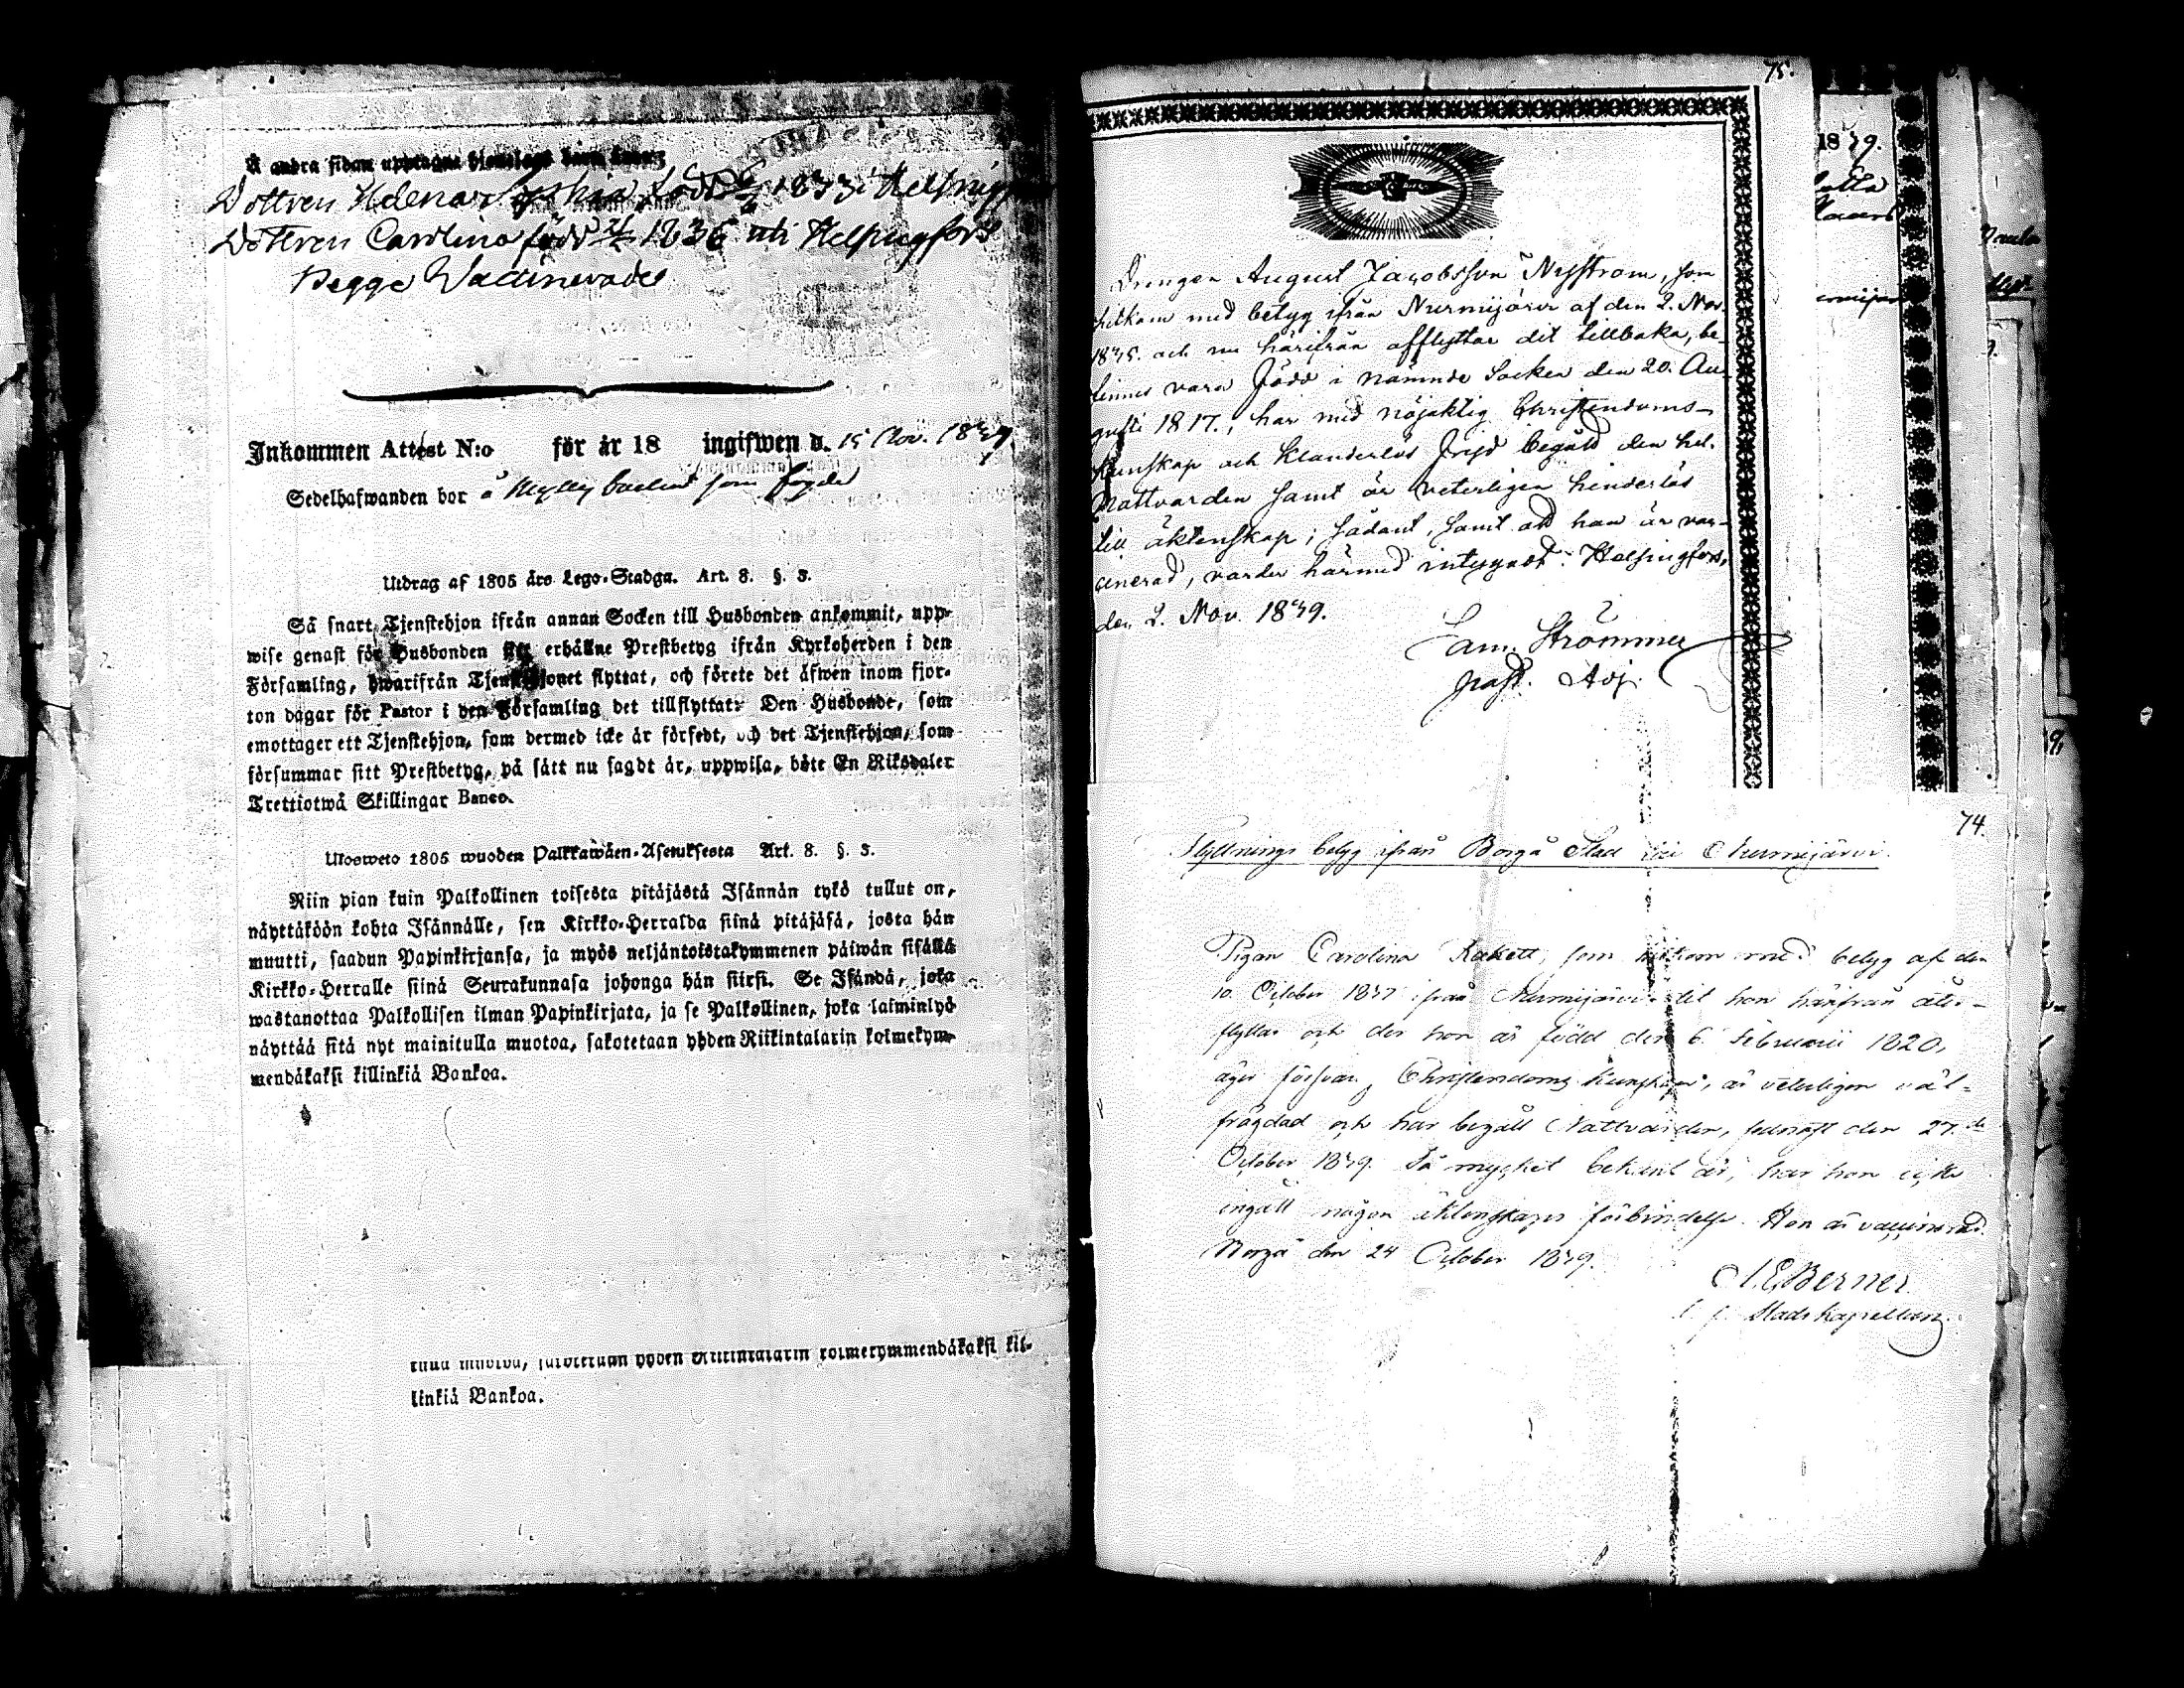 Å andra sidan upptagne
Dottren Helena Sophia född 1833 i Helsingfors
Dottren Carolina född 1836 uti Helsingfors
Begge Vaccinerade
Inkommen Attest N:o för år 18 ingifwen d. 15 Nov. 1839.
Sedelhafwanden bor å som fogde
Utdrag af 1805 års Lego-Stadga. Art. 8. §. 3.
Så snart Tjenstehjon ifrån annan Socken till Husbonden ankommit, upp-
wise genast för Husbonden sitt erhållne Prestbetyg ifrån Kyrkoherden i den
Församling, hwarifrån Tjenstehjonet flyttat, och förete det äfwen inom fjor-
ton dagar för Pastor i den Församling det tillflyttat: Den Husbonde, som
emottager ett Tjenstehjon, som dermed icke är försedt, och det Tjenstehjon, som
försummar sitt Prestbetyg, på sätt nu sagdt är, uppwisa, böte En Riksdaler
Trettiotwå Skillingar Banco.
Ulosweto 1805 wuoden Palkkawäen-Asetuksesta Art. 8. §. 3.
Niin pian kuin Palkollinen toisesta pitäjästä Isännän tykö tullut on,
näyttäköön kohta Isännälle, sen Kirkko-Herralda siinä pitäjäsä, josta hän
muutti, saadun Papinkirjansa, ja myös neljäntoistakymmenen päiwän sisällä
Kirkko-Herralle siinä Seurakunnasa johonga hän siirsi. Se Isändä, joka
wastanottaa Palkollisen ilman Papinkirjata, ja se Palkollinen, joka laiminlyö
näyttää sitä nyt mainitulla muotoa, sakotetaan yhden Riikintalarin kolmekym-
mendäkaksi killinkiä Bankoa.
tulla muotoa, sakotetaan yhden Riikintalarin kolmekymmendäkaksi kil-
linkiä Bankoa.
75.
Drängen August Jacobsson Nyström, som
hitkom med betyg ifrån Nurmijärvi af den 2. Nov.
1835. och nu härifrån afflyttar dit tillbaka, be-
finnes vara född i nämnde Socken den 20. Au-
gusti 1817., har med nöjaktig Christendoms-
kunskap och klanderlös frejd begått den hel.
Nattvarden samt är veterligen hinderlös
till äktenskap; sådant, samt att han är vac-
cinerad, varder härmed intygadt. Helsingfors,
den 2. Nov. 1839.
Sam. Strömmer
past. Adj.
1839.
74.
Flyttnings betyg ifrån Borgå Stad till Nurmijärvi.
Pigan Carolina Rakett, som hitkom med betyg af den
10. October 1837 ifrån Nurmijärvi dit hon härifrån åter-
flyttar och der hon är född den 6. Februarii 1820,
äger försvarl. Christendoms kunskap, är veterligen väl-
frägdad och har begått Nattvarden, sednast den 27.de
October 1839. Så mycket bekant är, har hon icke
ingått någon äktenskaps förbindelse. Hon är vaccinerad.
Borgå den 24 October 1839.
A. E. Berner.
Stads Kapellan.